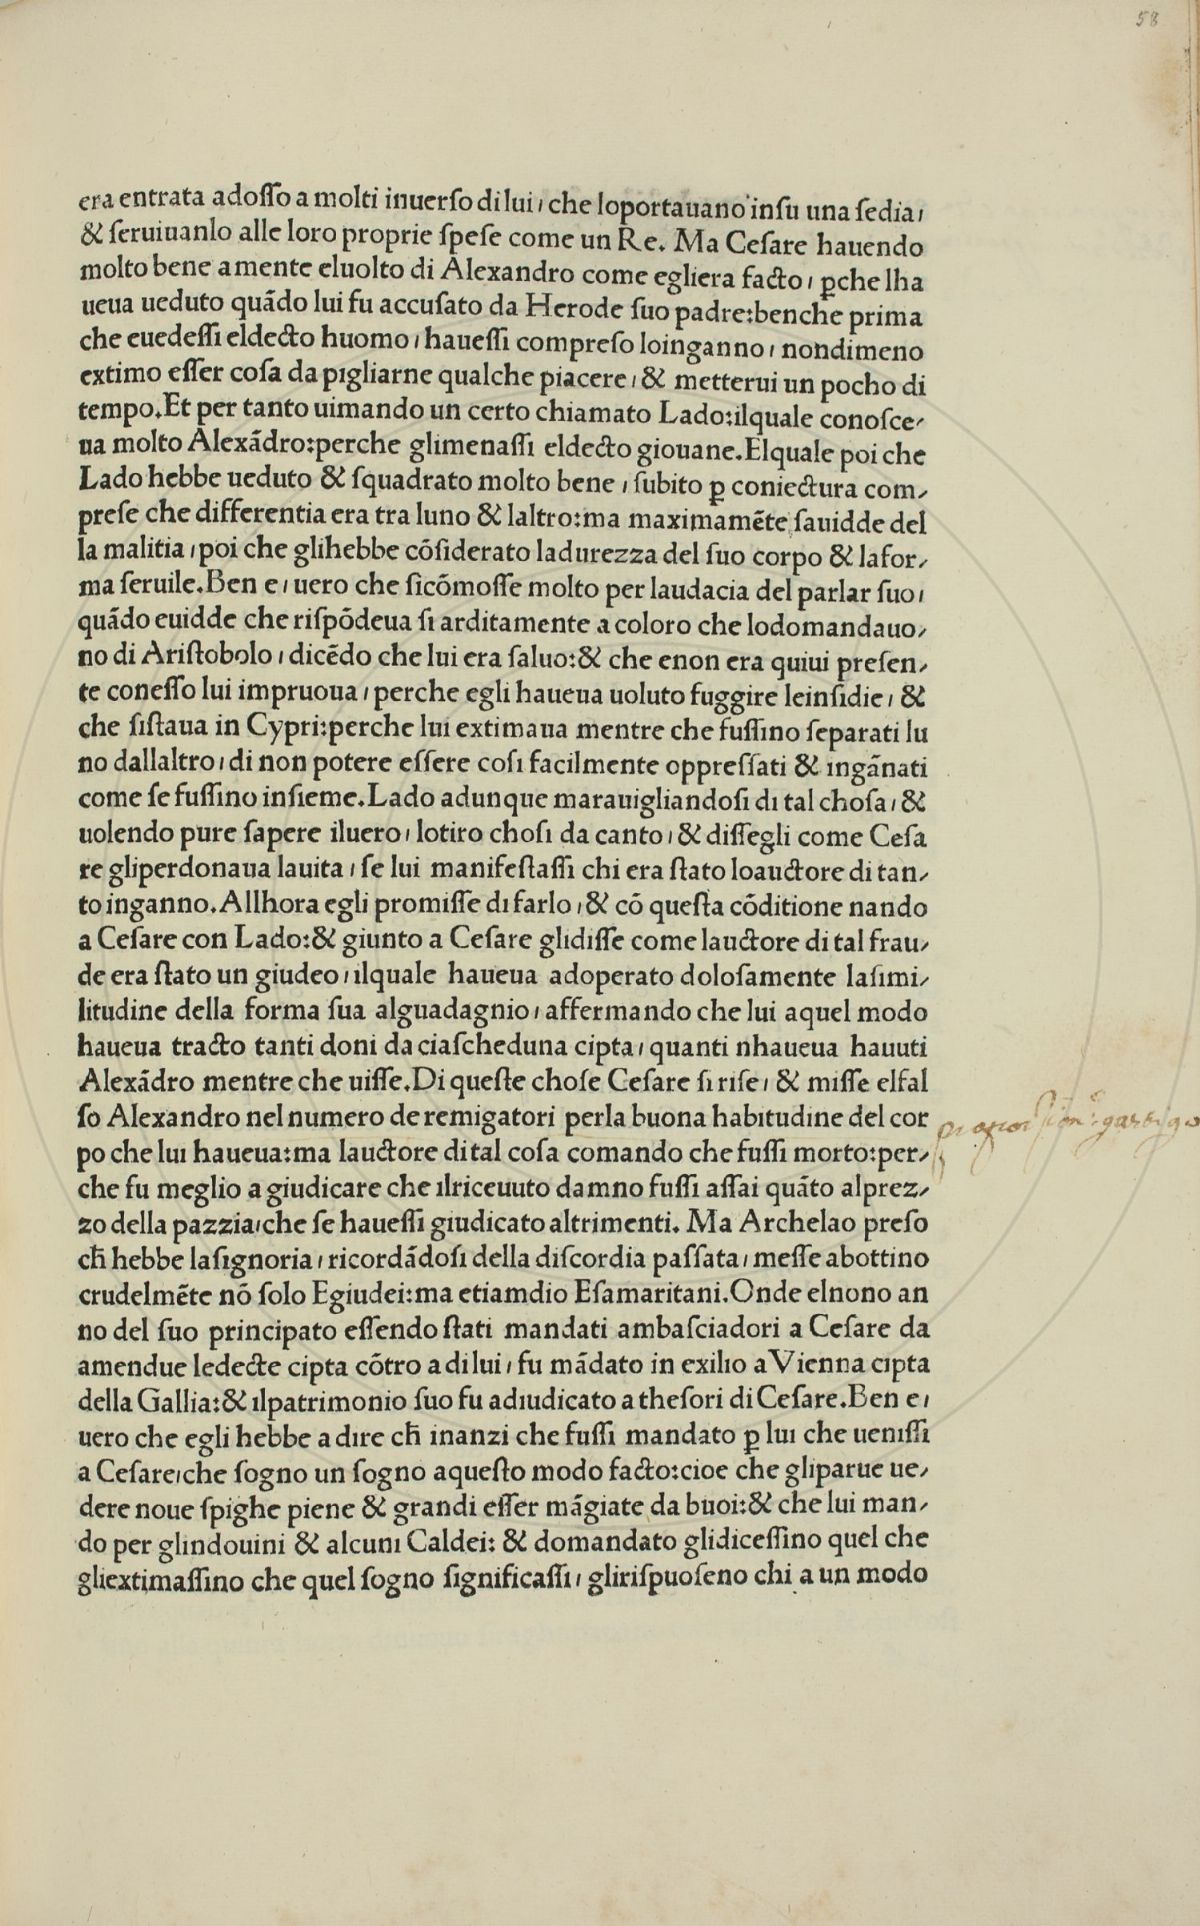 58
era entrata adoſſo a molti inuerſo di lui, che loportauano inſu una ſedia,
& ſeruiuanlo alle loro proprie ſpeſe come un Re. Ma Ceſare hauendo
molto bene amente eluolto di Alexandro come egliera facto, ꝑche lha
ueua ueduto quãdo lui fu accuſato da Herode ſuo padre:benche prima
che euedeſſi eldecto huomo, haueſſi compreſo loinganno, nondimeno
extimo eſſer coſa da pigliarne qualche piacere, & metterui un pocho di
tempo.Et per tanto uimando un certo chiamato Lado:ilquale conoſce-
ua molto Alexãdro:perche glimenaſſi eldecto giouane.Elquale poi che
Lado hebbe ueduto & ſquadrato molto bene, ſubito ꝑ coniectura com-
preſe che differentia era tra luno & laltro:ma maximamẽte ſauidde del
la malitia, poi che glihebbe cõſiderato ladurezza del ſuo corpo & lafor-
ma ſeruile.Ben e, uero che ſicõmoſſe molto per laudacia del parlar ſuo,
quãdo euidde che riſpõdeua ſi arditamente a coloro che lodomandauo-
no di Ariſtobolo, dicẽdo che lui era ſaluo:& che enon era quiui preſen-
te coneſſo lui impruoua, perche egli haueua uoluto fuggire leinſidie, &
che ſiſtaua in Cypri:perche lui extimaua mentre che fuſſino ſeparati lu
no dallaltro, di non potere eſſere coſi facilmente oppreſſati & ingãnati
come ſe fuſſino inſieme.Lado adunque marauigliandoſi di tal choſa, &
uolendo pure ſapere iluero, lotiro choſi da canto, & diſſegli come Ceſa
re gliperdonaua lauita, ſe lui manifeſtaſſi chi era ſtato loauctore di tan-
to inganno.Allhora egli promiſſe di farlo, & cõ queſta cõditione nando
a Ceſare con Lado:& giunto a Ceſare glidiſſe come lauctore di tal frau-
de era ſtato un giudeo, ilquale haueua adoperato doloſamente laſimi-
litudine della forma ſua alguadagnio, affermando che lui aquel modo
haueua tracto tanti doni da ciaſcheduna cipta, quanti nhaueua hauuti
Alexãdro mentre che uiſſe.Di queſte choſe Ceſare ſi riſe, & miſſe elfal
ſo Alexandro nel numero de remigatori perla buona habitudine del cor
po che lui haueua:ma lauctore di tal coſa comando che fuſſi morto:per-
che fu meglio a giudicare che ilriceuuto damno fuſſi aſſai quãto alprez-
zo della pazzia,che ſe haueſſi giudicato altrimenti. Ma Archelao preſo
cħ hebbe laſignoria, ricordãdoſi della diſcordia paſſata, meſſe abottino
crudelmẽte nõ ſolo Egiudei:ma etiamdio Eſamaritani.Onde elnono an
no del ſuo principato eſſendo ſtati mandati ambaſciadori a Ceſare da
amendue ledecte cipta cõtro a di lui, fu mãdato in exilio a Vienna cipta
della Gallia:& ilpatrimonio ſuo fu adiudicato a theſori di Ceſare.Ben e,
uero che egli hebbe a dire cħ inanzi che fuſſi mandato ꝑ lui che ueniſſi
a Ceſare,che ſogno un ſogno aqueſto modo facto:cioe che gliparue ue-
dere noue ſpighe piene & grandi eſſer mãgiate da buoi:& che lui man-
do per glindouini & alcuni Caldei: & domandato glidiceſſino quel che
gliextimaſſino che quel ſogno ſignificaſſi, gliriſpuoſeno chi a un modo